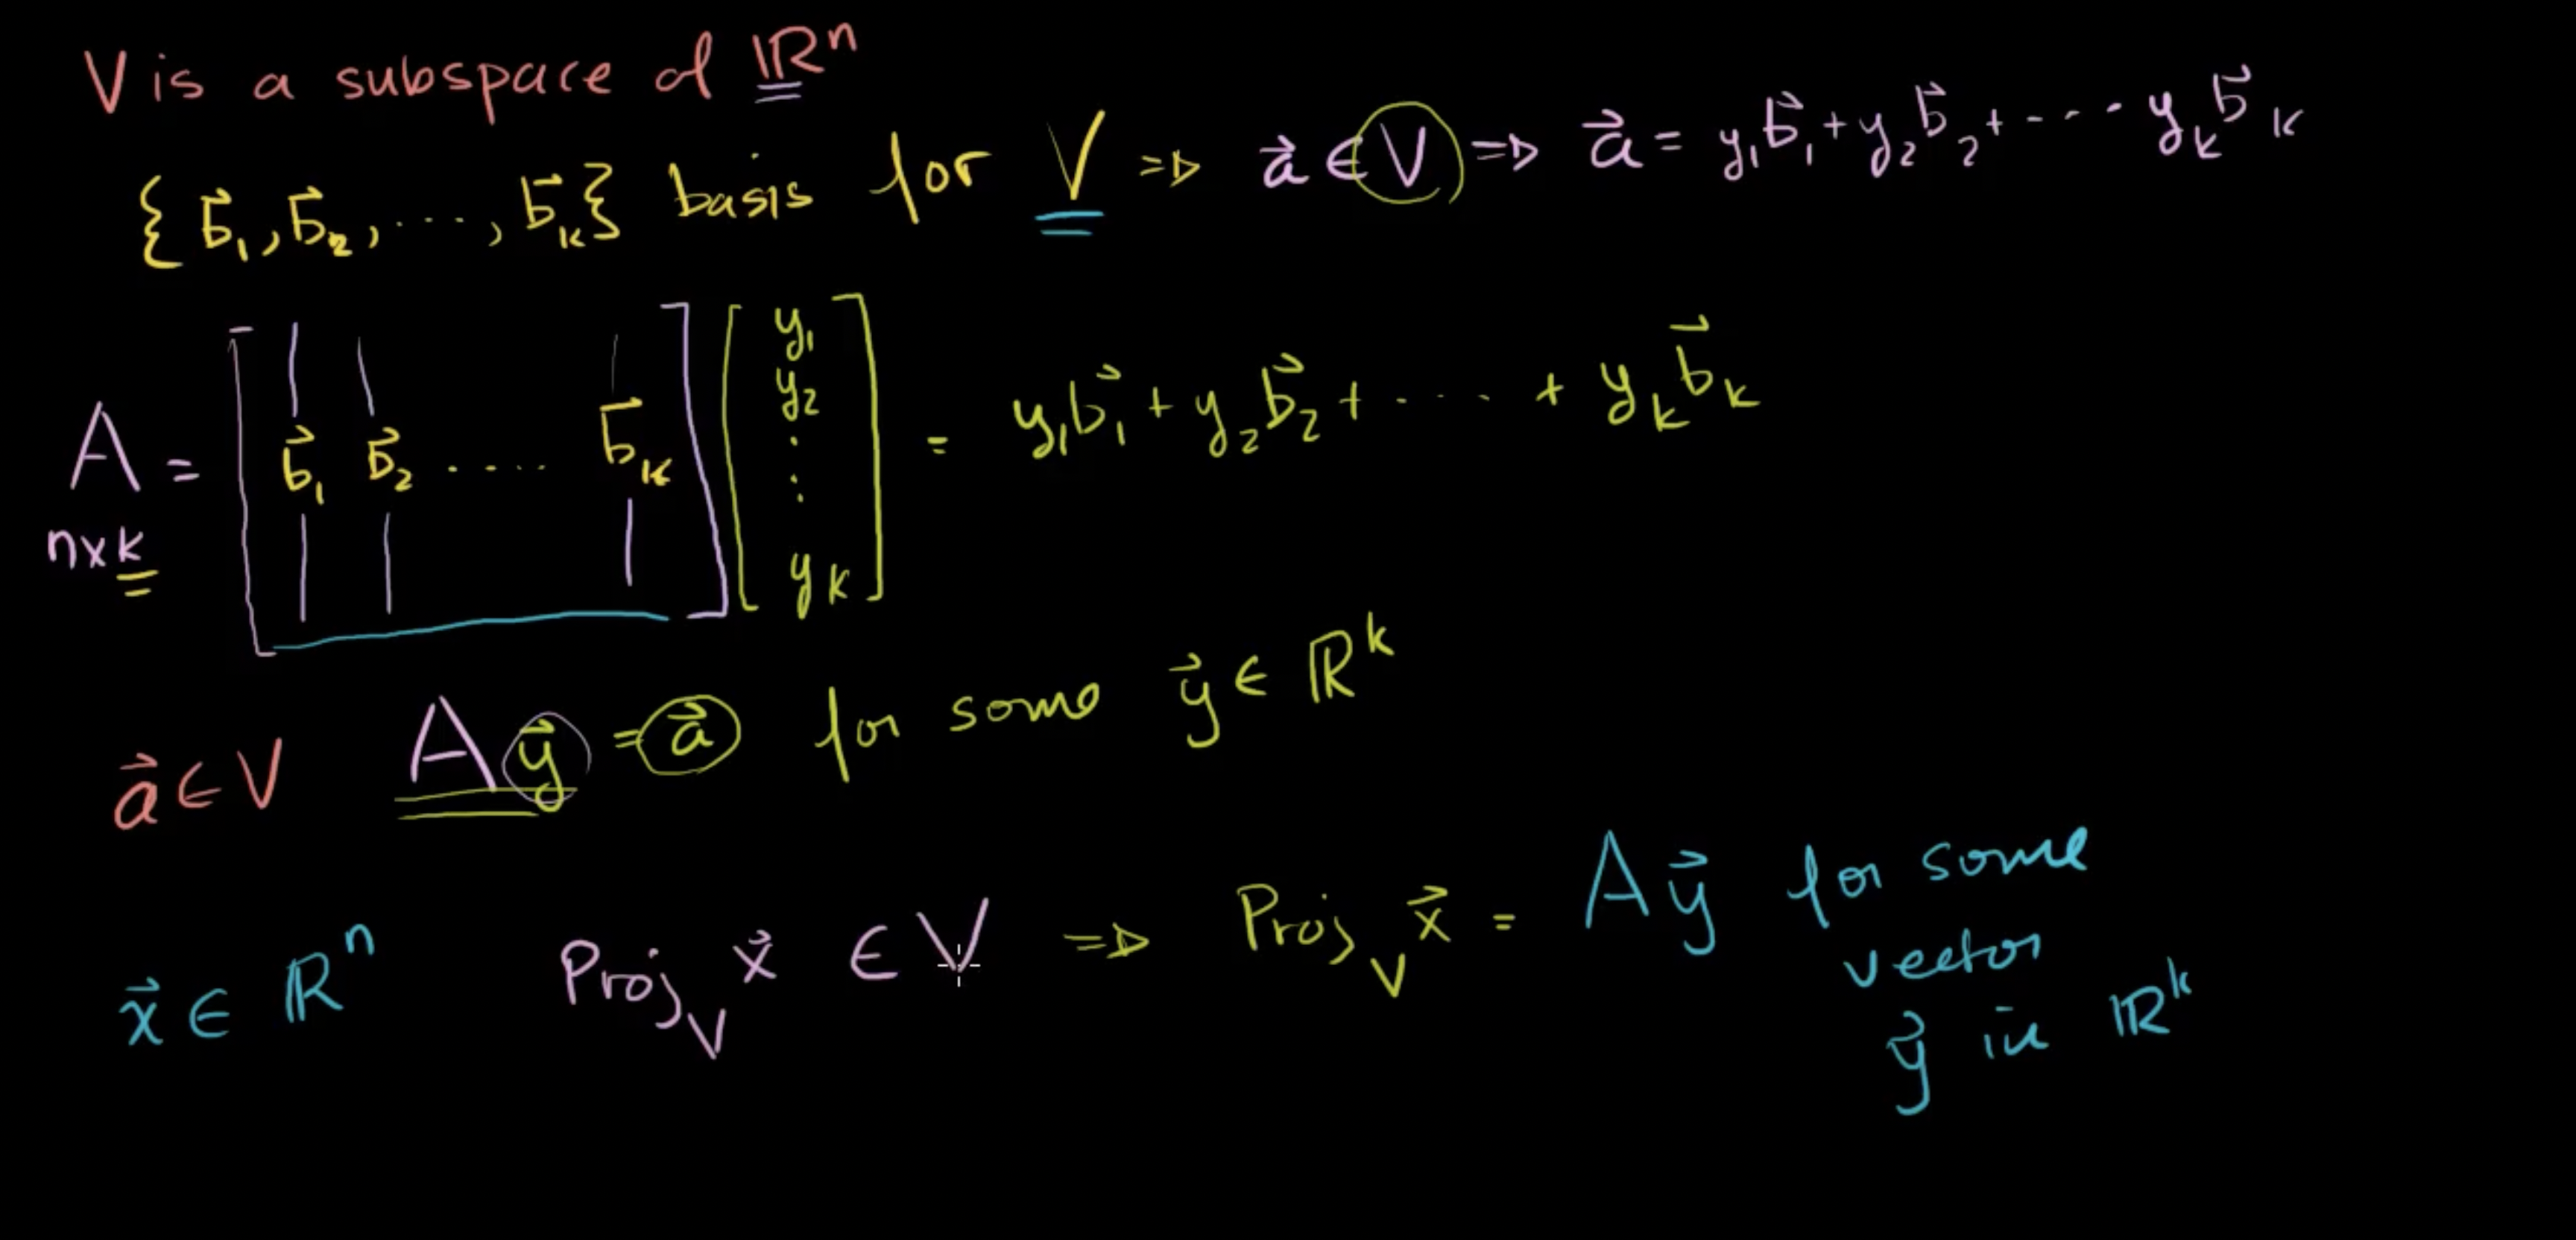 V is a subspace of ℝⁿ
{b⃗₁, b⃗₂, ..., b⃗ₖ} basis for V ⇒ a⃗ ∈ V ⇒ a⃗ = y₁b⃗₁ + y₂b⃗₂ + ···· yₖb⃗ₖ
A = [b⃗₁ b⃗₂ .... b⃗ₖ] [y₁ y₂ ⋮ yₖ] = y₁b⃗₁ + y₂b⃗₂ + .... + yₖb⃗ₖ
n×k
a⃗ ∈ V Ay⃗ = a⃗ for some y⃗ ∈ ℝᵏ
x⃗ ∈ ℝⁿ Proj_V x⃗ ∈ V ⇒ Proj_V x⃗ = Ay⃗ for some
vector
y⃗ in ℝᵏ